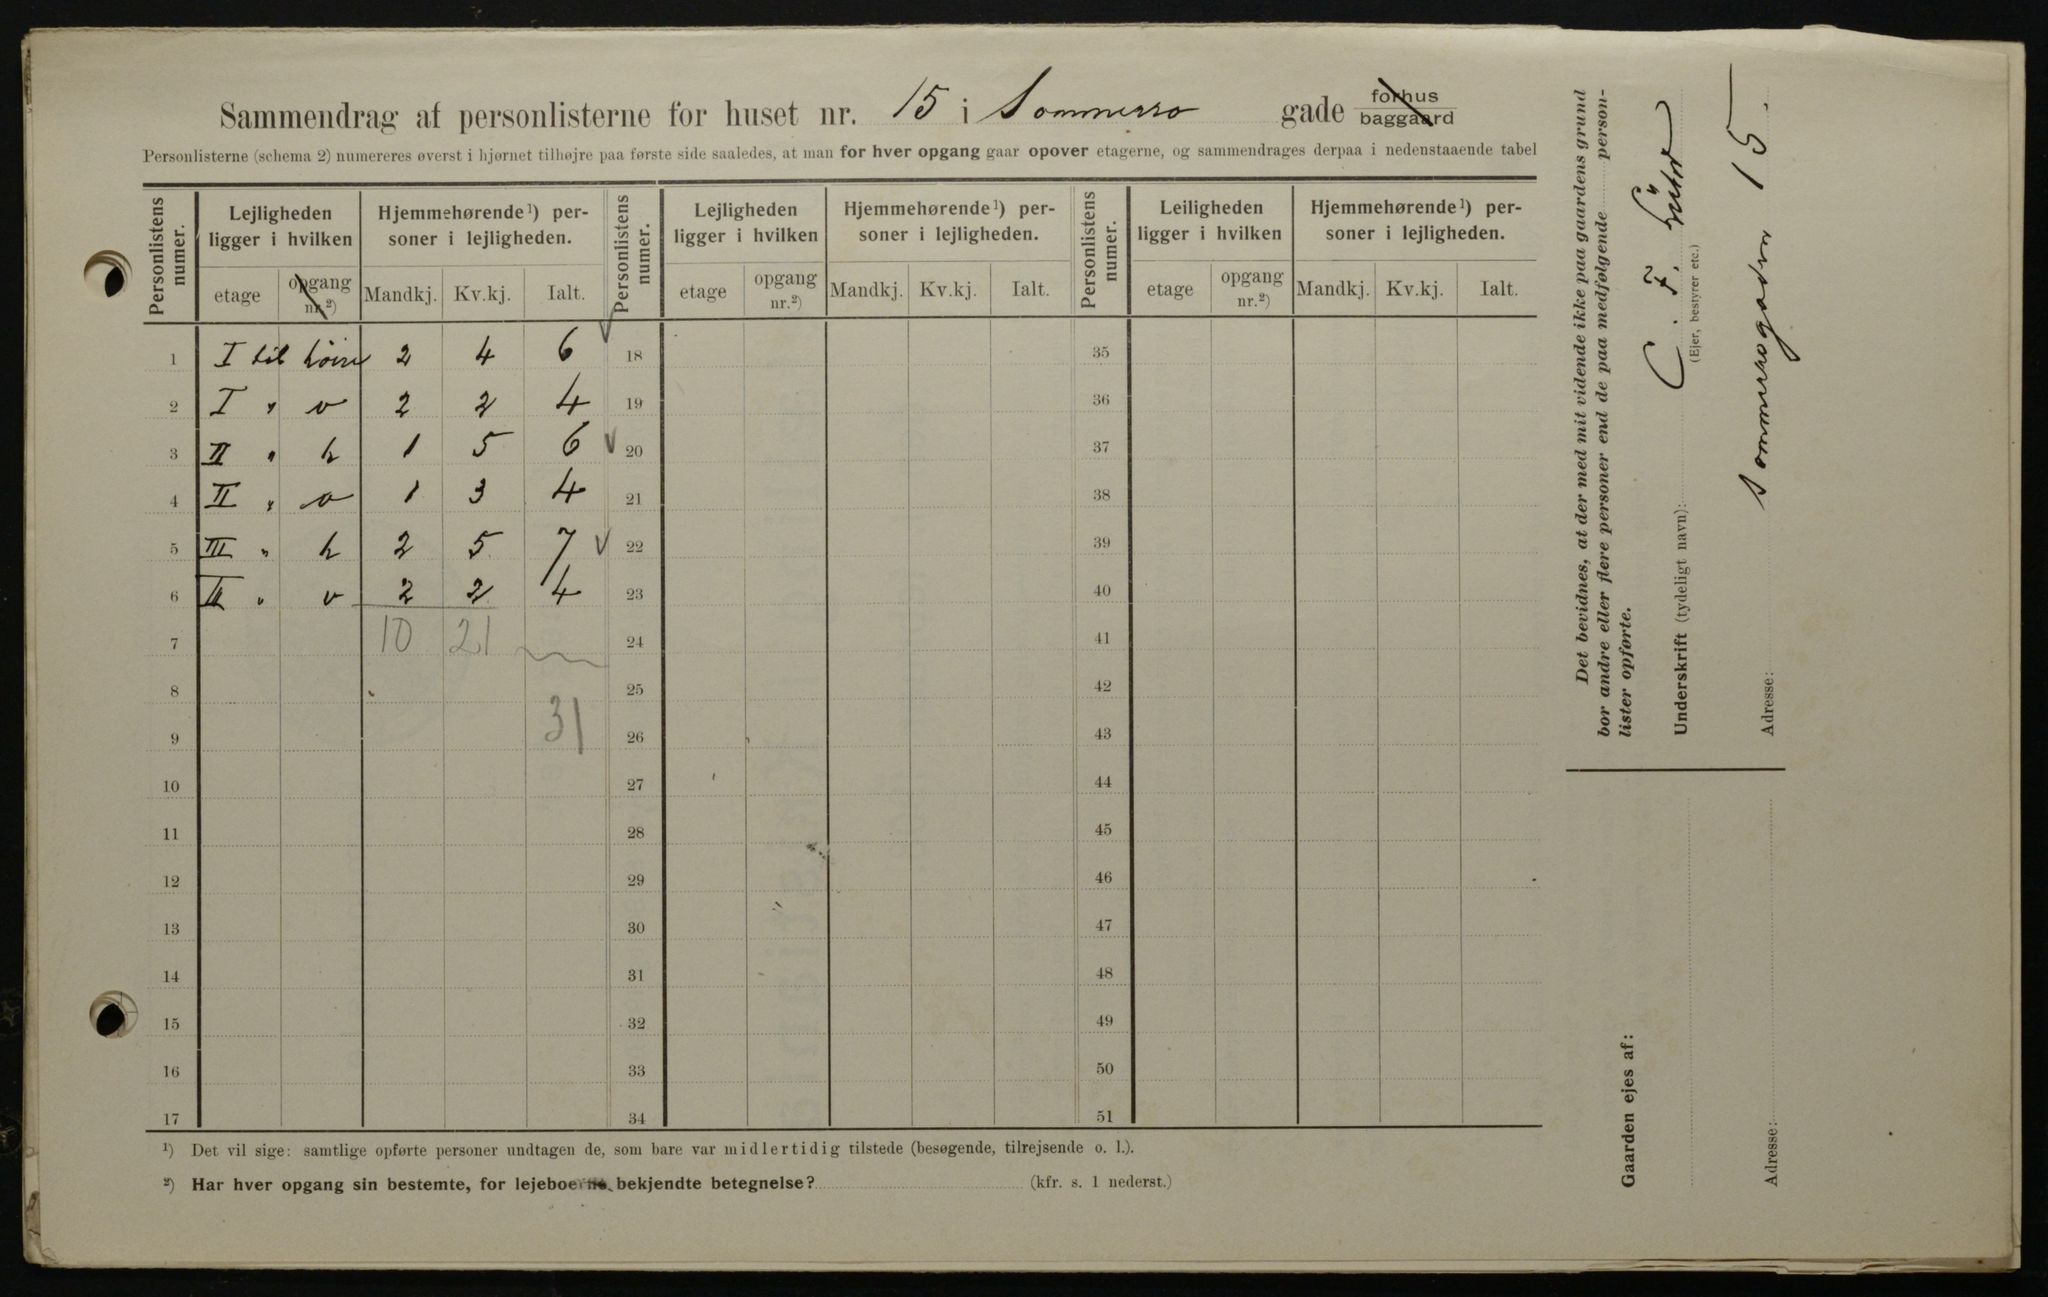 Sammendrag af personlisterne for huset nr. 15 i Sommerro gade forhus baggaard
Personlisterne (schema 2) numereres øverst i hjørnet tilhøjre paa første side saaledes, at man for hver opgang gaar opover etagerne, og sammendrages derpaa i nedenstaaende tabel
Personlistens numer. Lejligheden ligger i hvilken Hjemmehørende¹) personer i lejligheden. Personlistens numer. Lejligheden ligger i hvilken Hjemmehørende¹) personer i lejligheden. Personlistens numer. Leiligheden ligger i hvilken Hjemmehørende¹) personer i lejligheden.
etage opgang nr.²) Mandkj. Kv.kj. Ialt. etage opgang nr.²) Mandkj. Kv.kj. Ialt. etage opgang nr.²) Mandkj. Kv.kj. Ialt.
1 I til höire 2 4 6 18 35
2 I " v 2 2 4 19 36
3 II " h 1 5 6 20 37
4 II " v 1 3 4 21 38
5 III " h 2 5 7 22 39
6 III " v 2 2 4 23 40
7 10 21 24 41
8 25 42
9 31 26 43
10 27 44
11 28 45
12 29 46
13 30 47
14 31 48
15 32 49
16 33 50
17 34 51
¹) Det vil sige: samtlige opførte personer undtagen de, som bare var midlertidig tilstede (besøgende, tilrejsende o. l.).
²) Har hver opgang sin bestemte, for lejeboerne bekjendte betegnelse? (kfr. s. 1 nederst.)
Det bevidnes, at der med mit vidende ikke paa gaardens grund
bor andre eller flere personer end de paa medfølgende person-
lister opførte.
Underskrift (tydeligt navn): C. F.
(Ejer, bestyrer etc.)
Adresse: Sommerrogaden 15.
Gaarden ejes af:
Adresse: